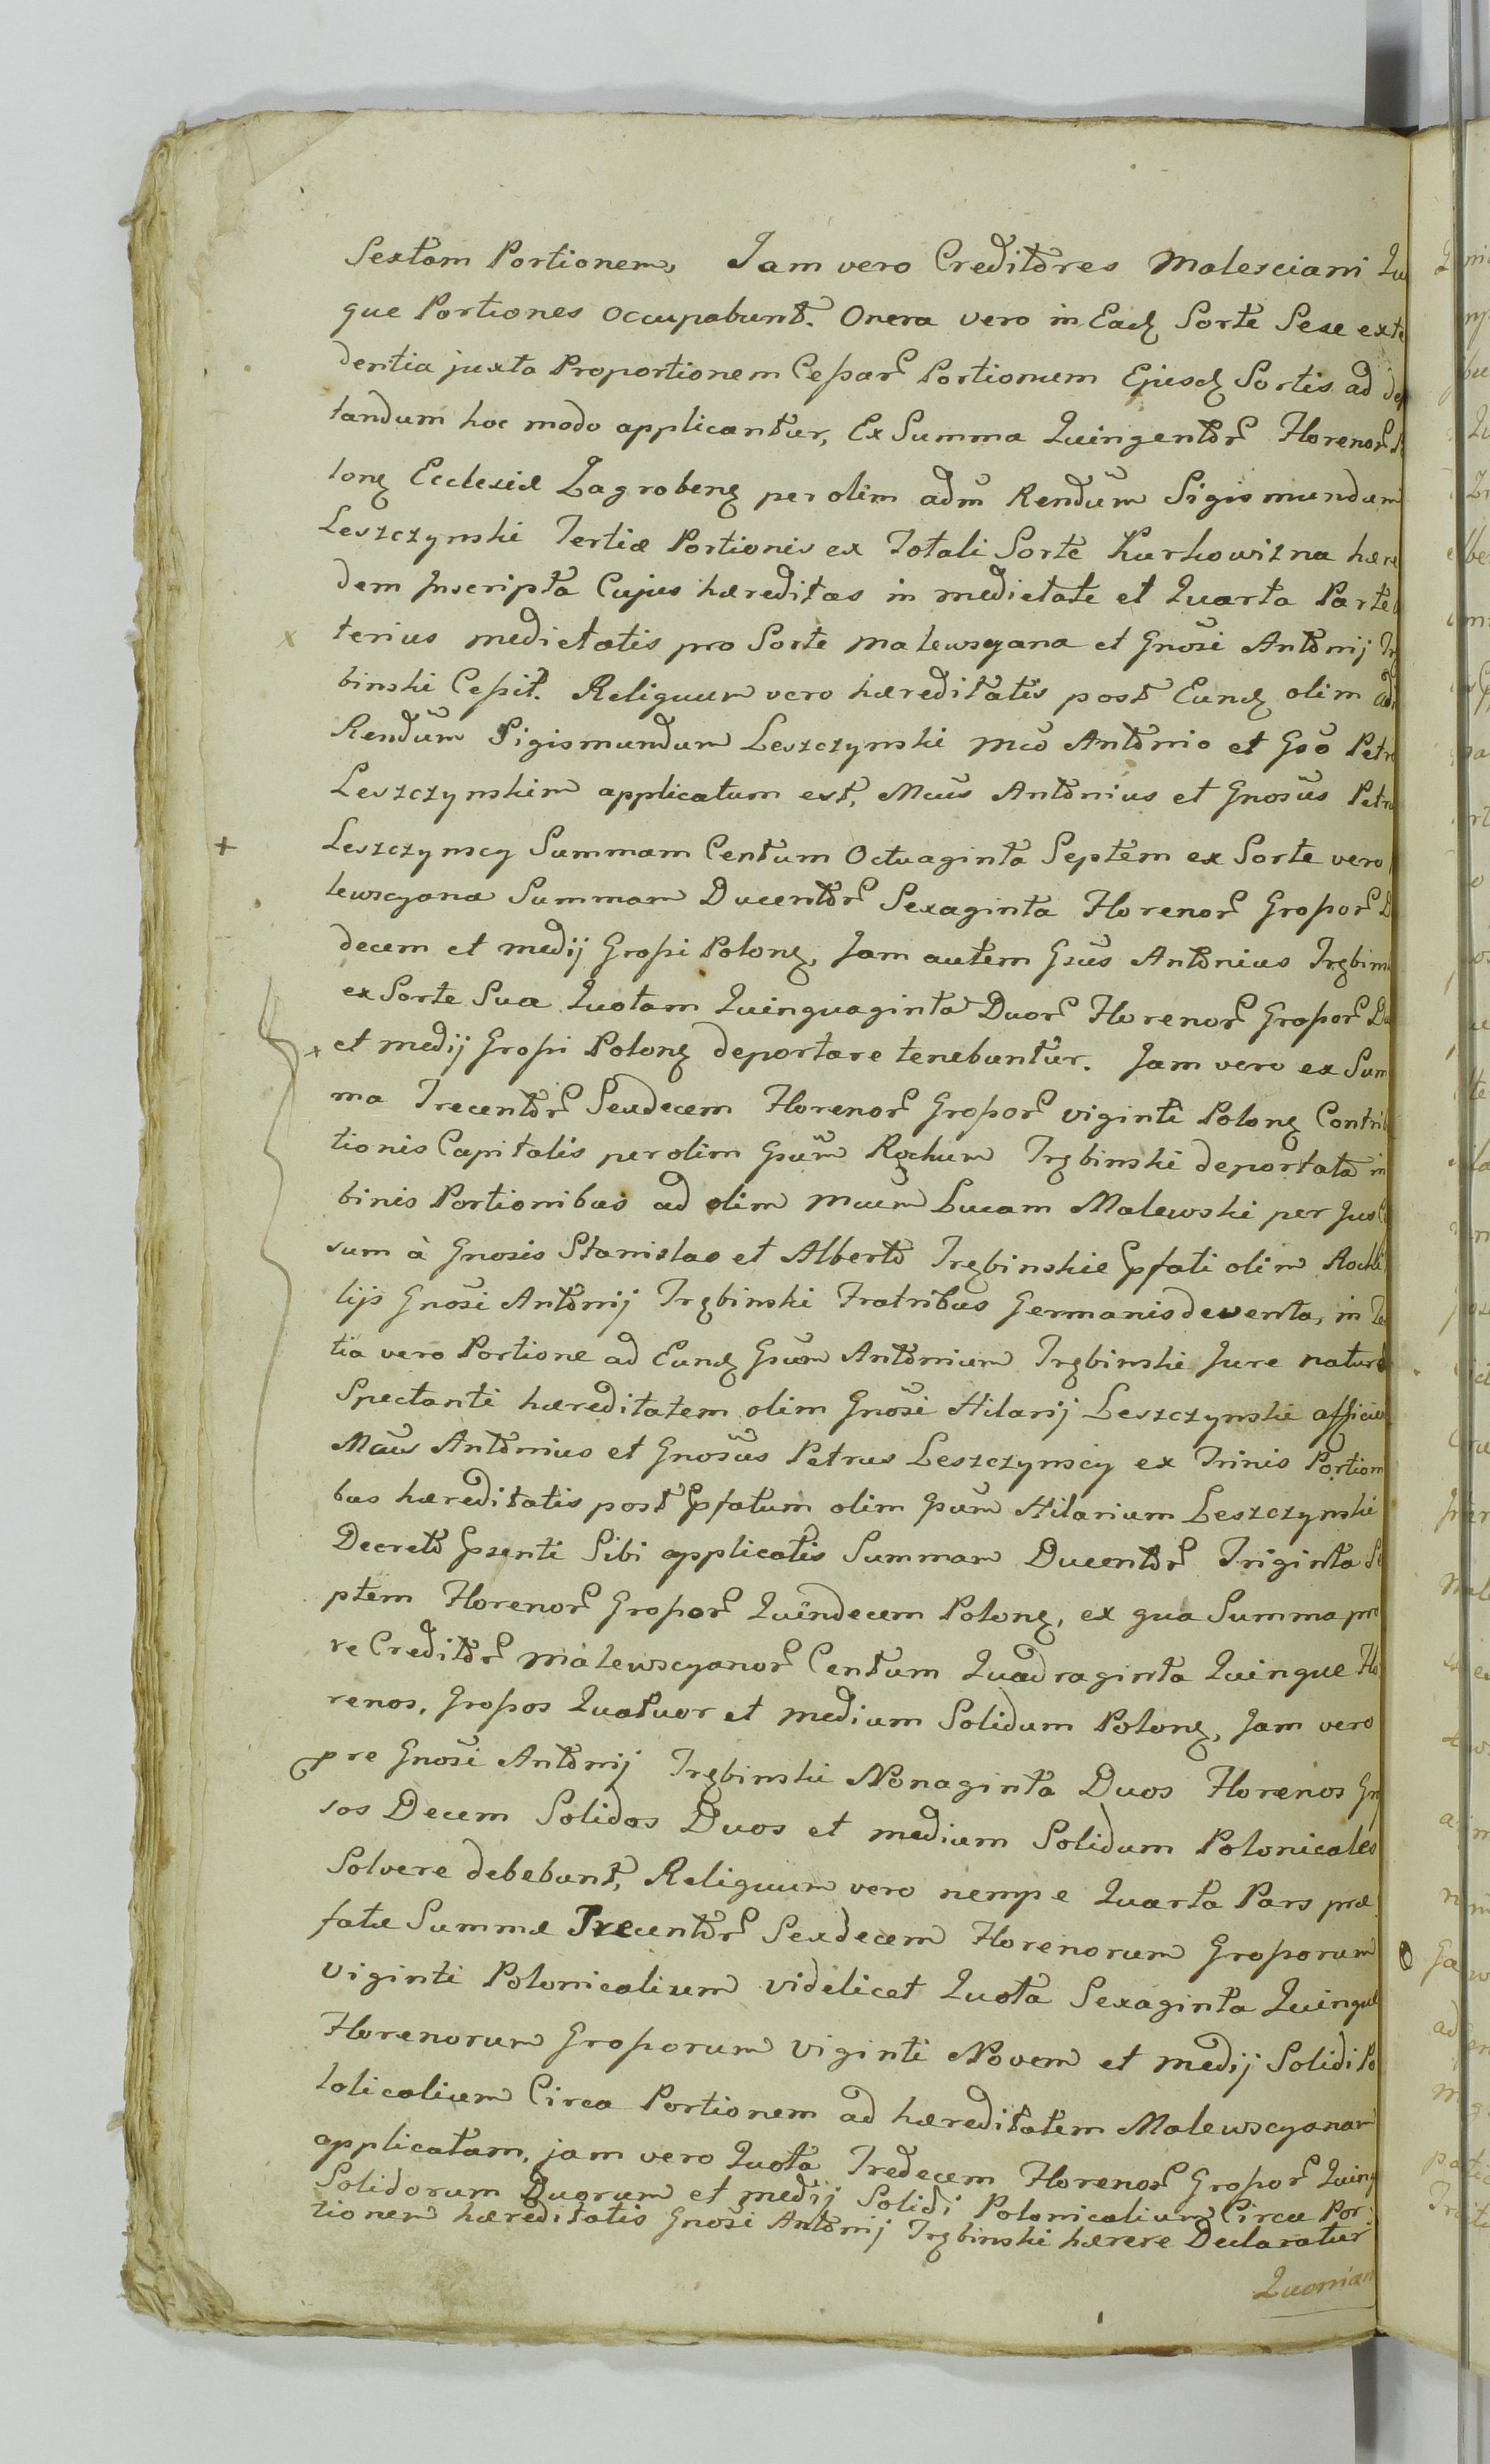 Sextam Portionem, Jam vero Creditores Malesciani Qu
que Portiones occupabunt. Onera vero in Eadꝫ Sorte Sese exte
dentia juxta Proportionem Cessar Portionum Ejusdꝫ Sortis ad dep
tandum hoc modo applicantur, Ex Summa Quingentor Florenor
lonꝫ Ecclesiæ Zagrobenꝫ per olim adm Rendum Sigismundum
Leszczynski Tertiæ Portionis ex Totali Sorte Kurkowizna hære
dem Inscripta Cujus hæreditas in medietate et Quarta Parte
terius medietatis pro Sorte Malewscyana et Gnosi Antonij Tr
binski Cessit. Reliquum vero hæreditatis post Eundꝫ olim ad
Rendum Sigismundum Leszczynski Mco Antonio et Gso Petr
Leszczynskim applicatum est, Mcus Antonius et Gnosus Petru
Leszczynscy Summam Centum Octuaginta Septem ex Sorte vero
lewscyana Summam Ducentor Sexaginta Florenor Grossor D
decem et medij Grossi Polonꝫ, Jam autem Gsus Antonius Trębins
ex Sorte Sua Quotam Quinquaginta Duor Florenor Grossor Du
et medij Grossi Polonꝫ deportare tenebuntur. Jam vero ex Sum
ma Trecentor Sexdecem Florenor Grossor viginti Polonꝫ Contrib
tionis Capitalis per olim Gsum Rochum Trębinski deportata in
binis Portionibus ad olim Mcum Lucam Malewski per Jus C
sum à Gnosis Stanislao et Alberto Trębinskie Pfati olim Rochi
lijs Gnosi Antonij Trębinski Fratribus Germanis deventa, in Te
tia vero Portione ad Eundꝫ Gsum Antonium Trębinski Jure natura
Spectanti hæreditatem olim Gnosi Hilarij Leszczynski afficien
Mcus Antonius et Gnosus Petrus Leszczynscy ex Trinis Portioni
bus hæreditatis post Pfatum olim Gsum Hilarium Leszczynski
Decreto Psenti Sibi applicatis Summam Ducentor Triginta Se
ptem Florenor Grossor Quindecem Polonꝫ, ex qua Summa pro
re Creditor Malewscyanor Centum Quadraginta Quinque Flo
renos, Grossos Quatuor et medium Solidum Polonꝫ, Jam vero
pre Gnosi Antonij Trębinski Nonaginta Duos Florenos Gro
sos Decem Solidos Duos et medium Solidum Polonicales
Solvere debebunt, Reliquum vero nempe Quarta Pars præ
fatæ Summæ Trecentor Sexdecem Florenorum Grossorum
Viginti Polonicalium videlicet Quota Sexaginta Quinque
Florenorum Grossorum Viginti Novem et medij Solidi Po
lolicalium Circa Portionem ad hæreditatem Malewscyanam
applicatam, jam vero Quota Tredecem Florenor Grossor Quinq
Solidorum Duorum et medij Solidi Polonicalium Circa Por:
tionem hæreditatis Gnosi Antonij Trębinski hærere Declaratur
Quoniam